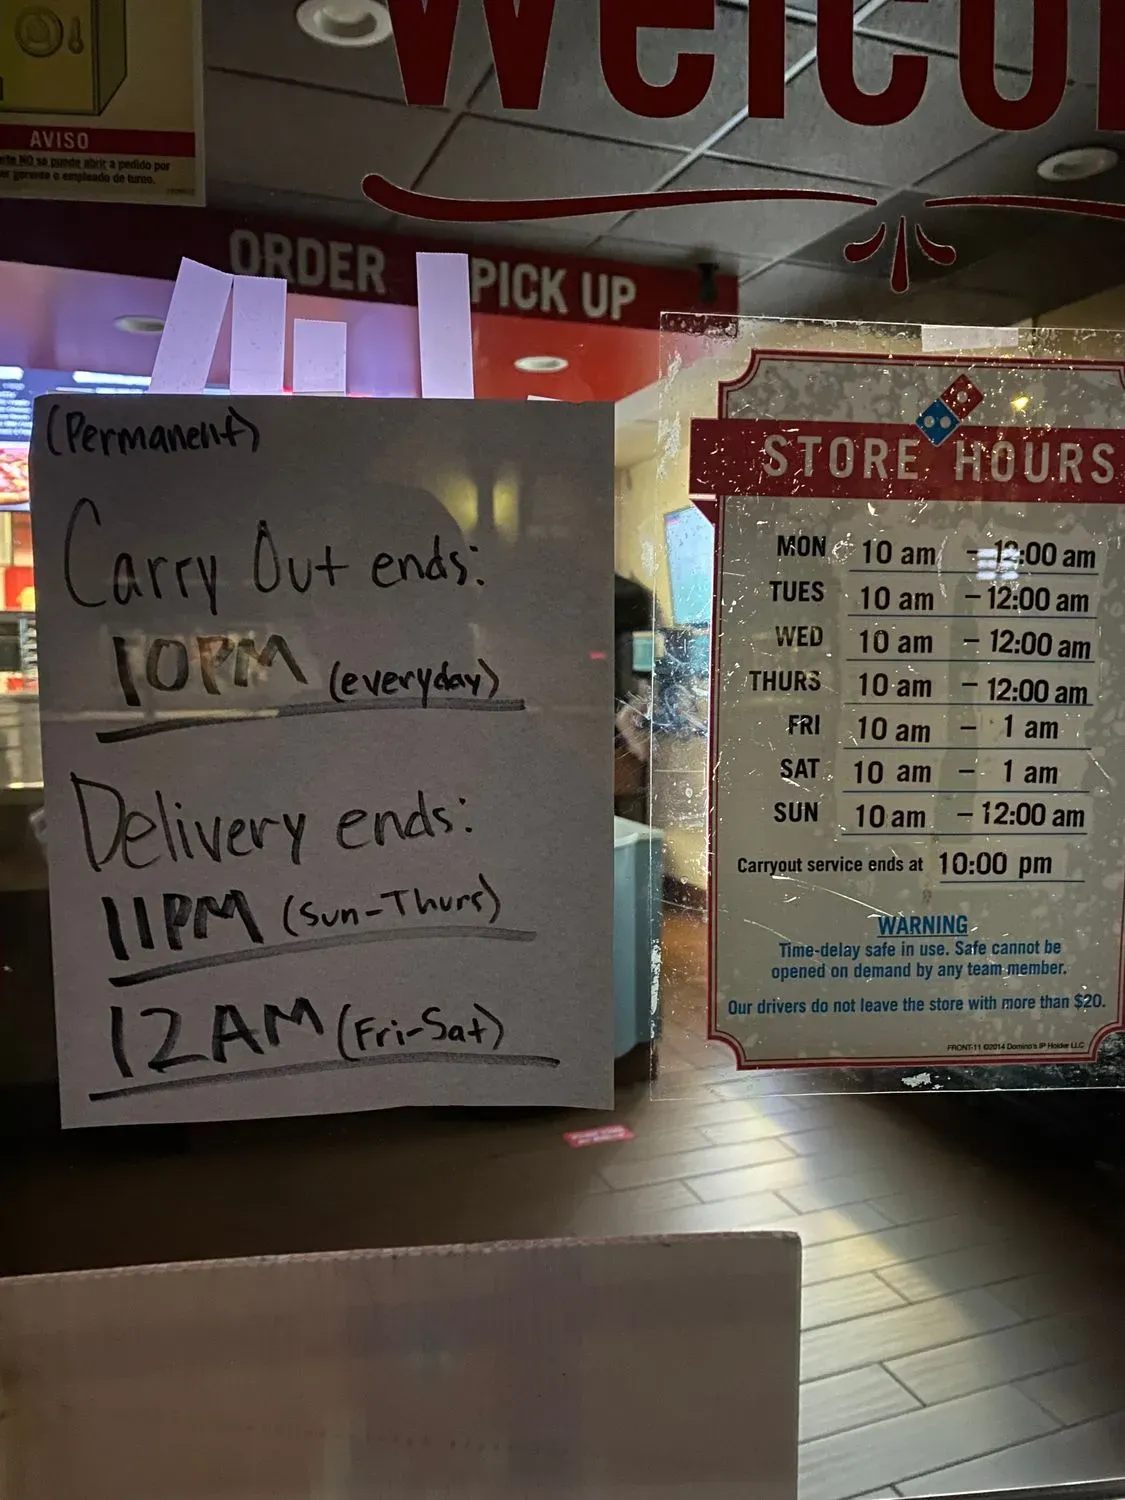 AVISO
NO se puede abrir a pedido por
gerente o empleado de turno.
Welco
ORDER
PICK UP
(Permanent)
Carry Out ends:
10PM (everyday)
Delivery ends:
11PM (Sun-Thurs)
12AM (Fri-Sat)
STORE HOURS
MON 10 am - 12:00 am
TUES 10 am - 12:00 am
WED 10 am - 12:00 am
THURS 10 am - 12:00 am
FRI 10 am - 1 am
SAT 10 am - 1 am
SUN 10 am - 12:00 am
Carryout service ends at 10:00 pm
WARNING
Time-delay safe in use. Safe cannot be
opened on demand by any team member.
Our drivers do not leave the store with more than $20.
FRONT-11 ©2014 Domino's IP Holder LLC